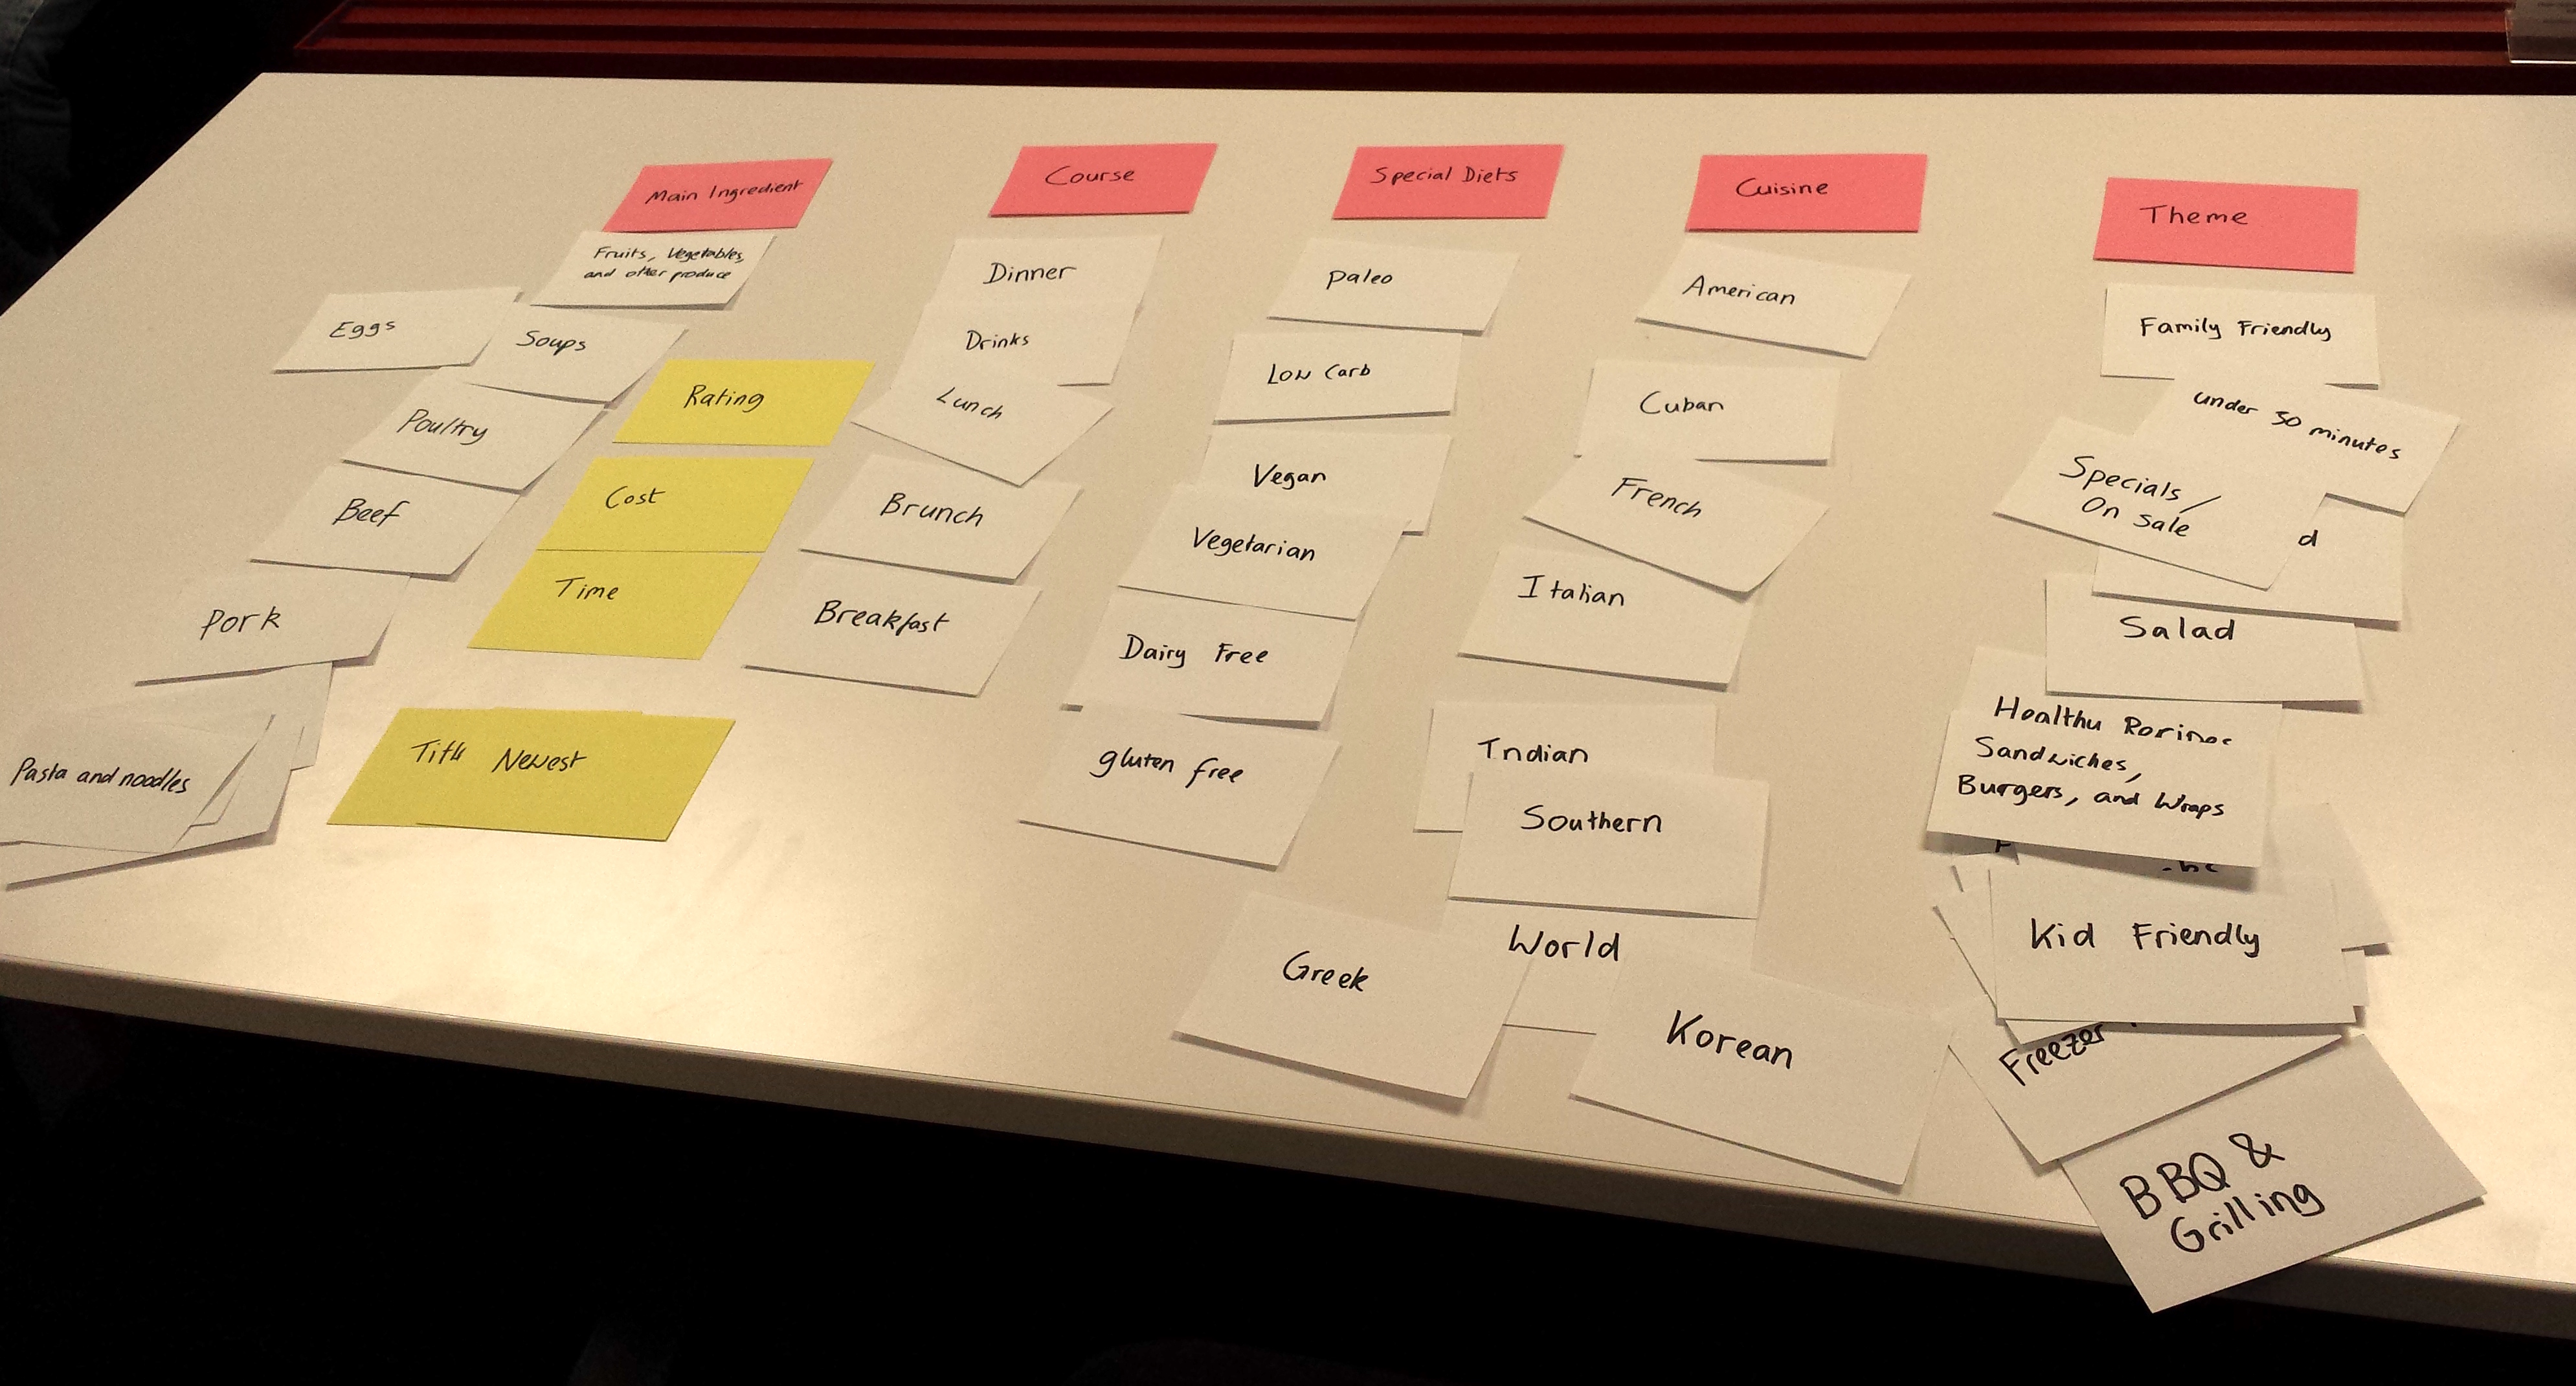 Main Ingredient
Fruits, Vegetables,
and other produce
Eggs
Soups
Poultry
Beef
Pork
Pasta and noodles
Rating
Cost
Time
Title
Newest
Course
Dinner
Drinks
Lunch
Brunch
Breakfast
Special Diets
Paleo
Low Carb
Vegan
Vegetarian
Dairy Free
gluten free
Cuisine
American
Cuban
French
Italian
Indian
Southern
World
Greek
Korean
Theme
Family Friendly
under 30 minutes
Specials/
On sale
d
Salad
Healthy
Sandwiches,
Burgers, and Wraps
Kid Friendly
Freezer
BBQ &
Grilling